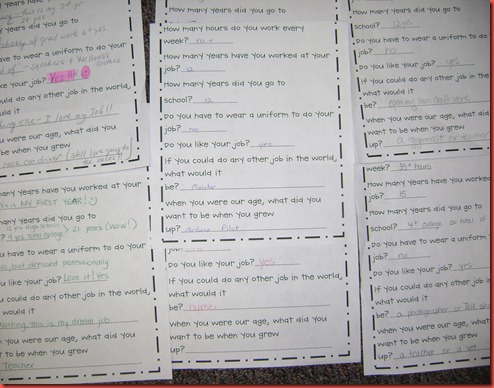 years have
this is my 3rd
years did you go to
of grad work 6+ yrs
have to wear a uniform to do your
of - sneakers & Wellness
ike your job? Yes !!!
ould do any other job in the world,
uld it
else - I love my Job!!
ou were our age, what did you
be when you grew
race car driver (still love going to the races)
many years have you worked at your
THIS IS MY FIRST YEAR! :)
many years did you go to
21 years (wow!)
ou have to wear a uniform to do your
no, but dressed professionally
you like your job? Love it! Yes
u could do any other job in the world,
would it
Nothing, this is my dream job
you were our age, what did
t to be when you grew
Teacher
How many years did you go to
How many hours do you work every
week?
How many years have you worked at your
job? 12
How many years did you go to
school? 12
Do you have to wear a uniform to do your
job? no
Do you like your job? yes
If you could do any other job in the world,
what would it
be?
When you were our age, what did you
want to be when you grew
up? Pilot
Do you like your job? yes
If you could do any other job in the world,
what would it
be? nurse
When you were our age, what did you
want to be when you grew
up?
How many years did you go to
school? 12 yrs
Do you have to wear a uniform to do your
job? no
Do you like your job? yes
If you could do any other job in the world,
what would it
be?
When you were our age, what did you
want to be when you grew
up? a
week? 35+ hours
How many years have you worked
job? 15
How many years did you go to
school? 4+ college
Do you have to wear a uniform
job? no
Do you like your job? yes
If you could do any other job
what would it
be? a photographer or
When you were our age,
want to be when you grew
up? a teacher or a vet